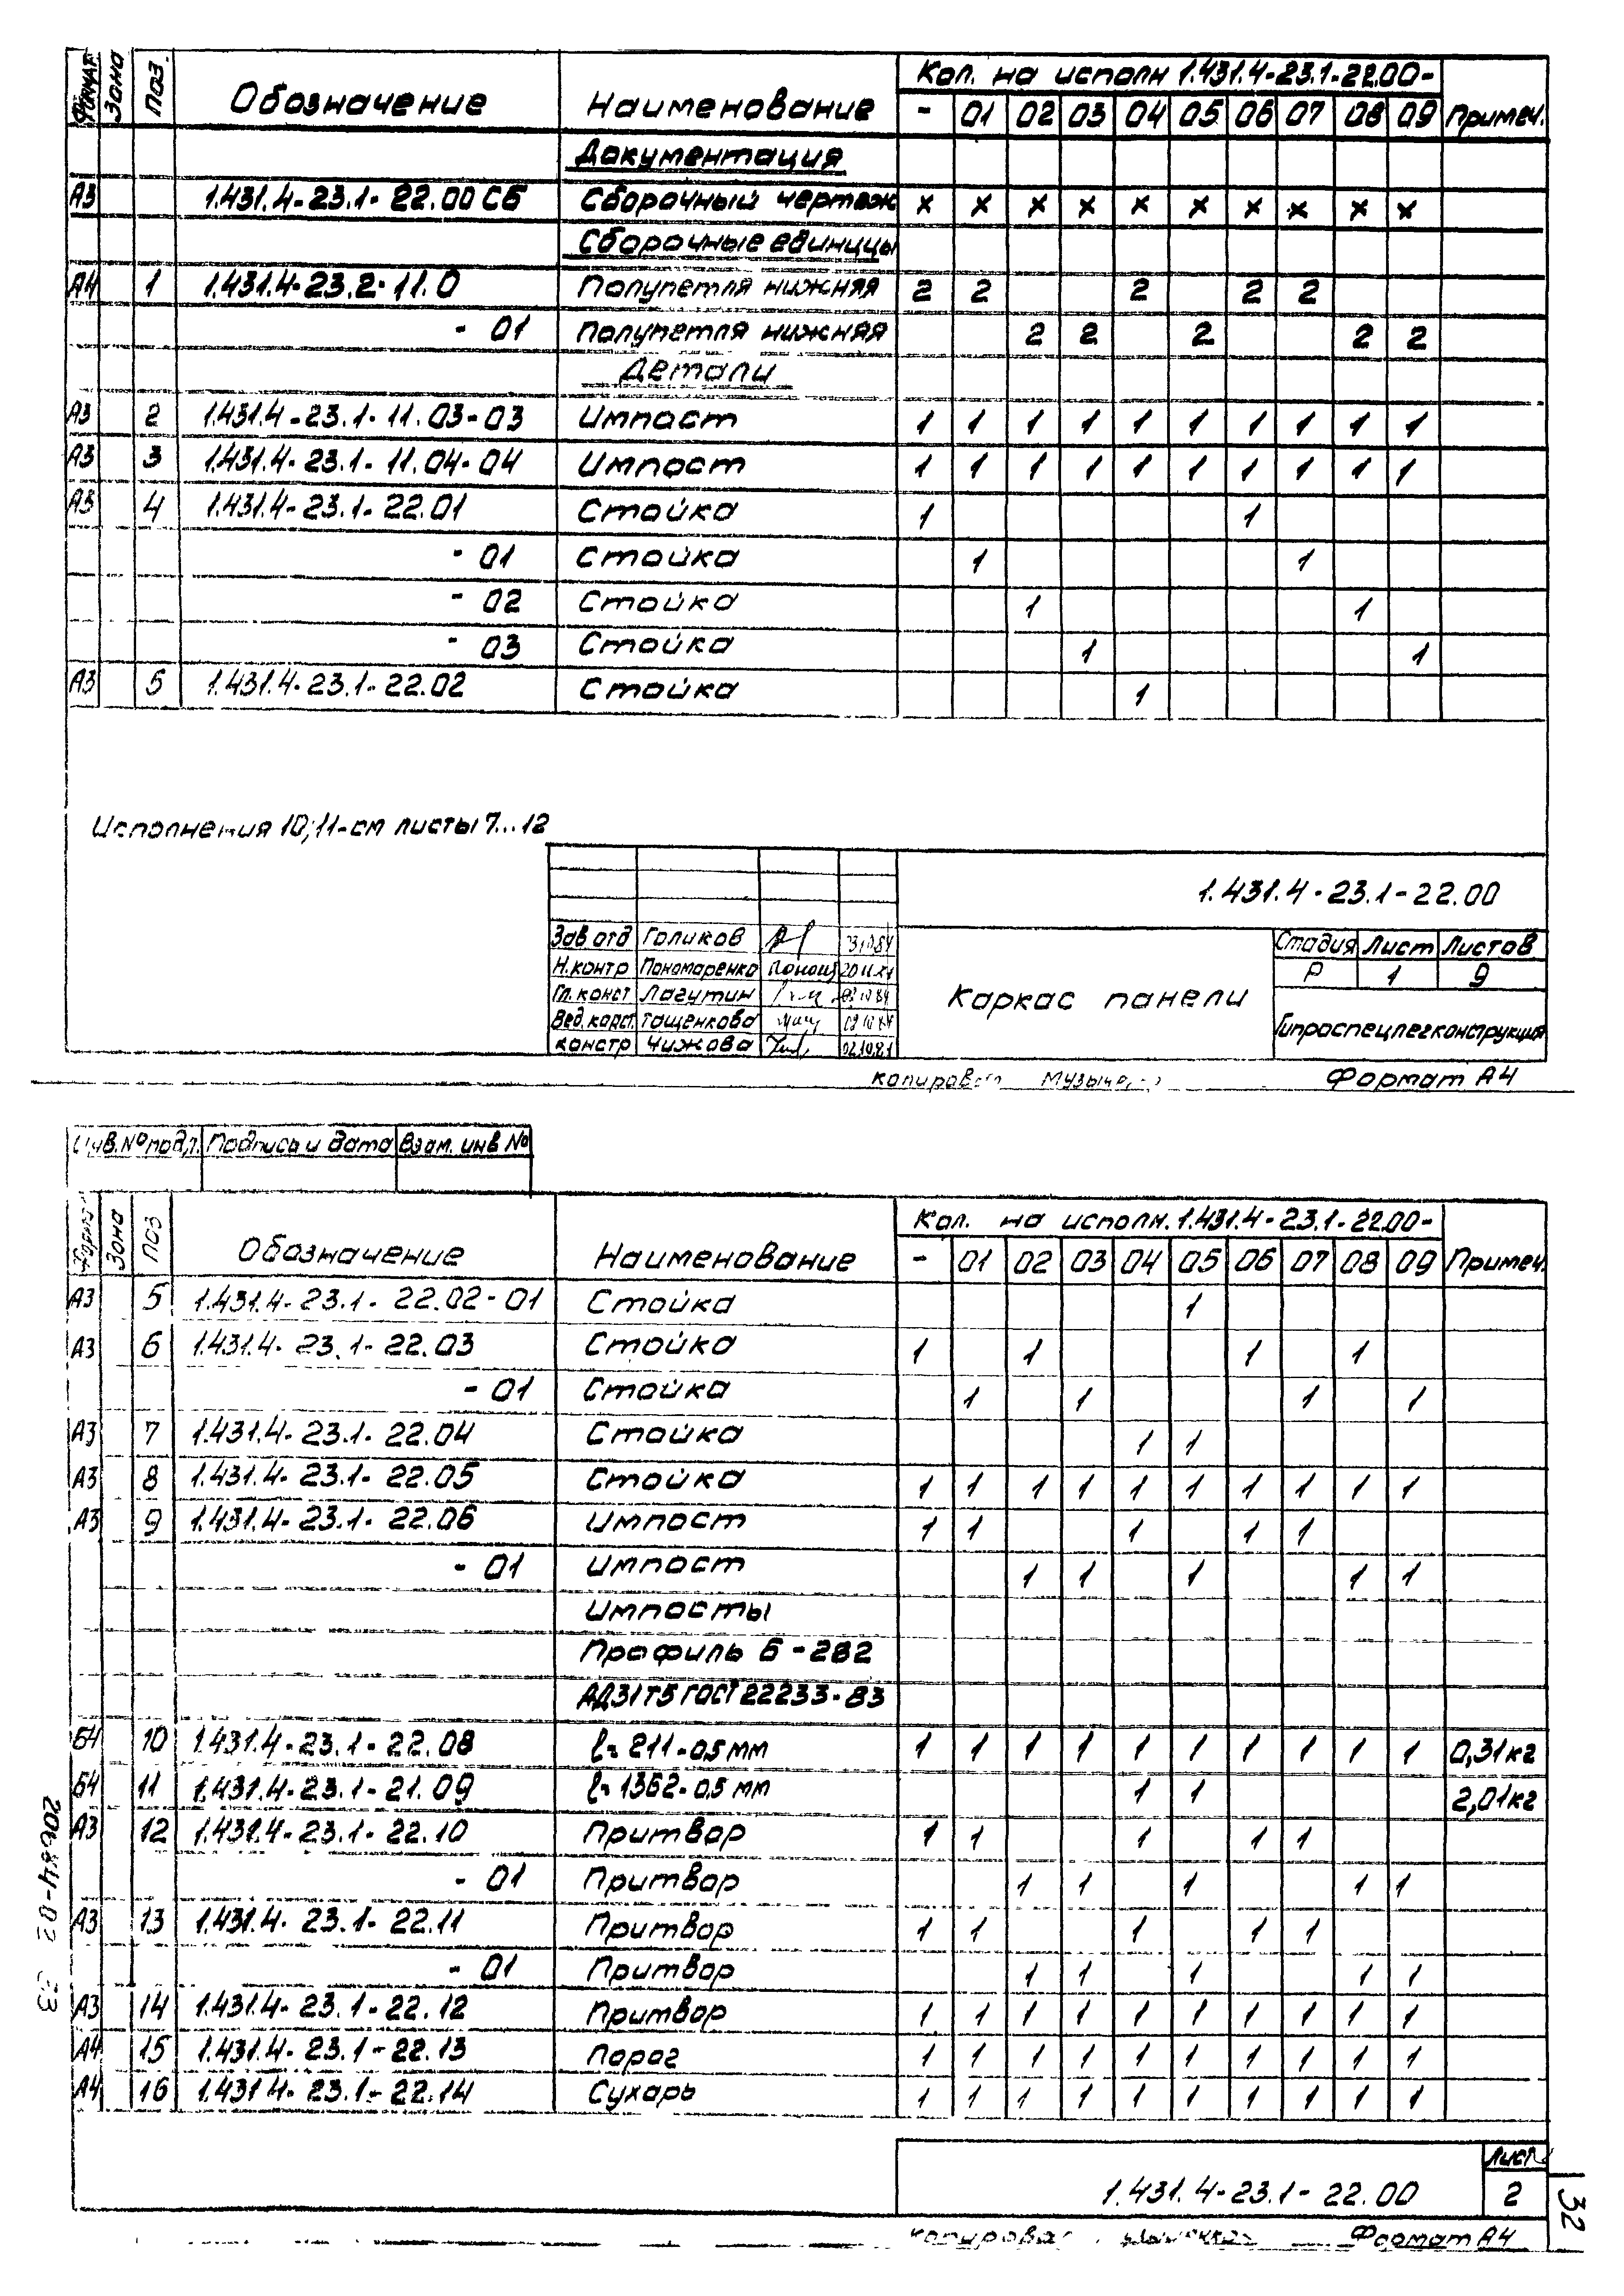 Формат Зона Поз. Обозначение Наименование Кол. на исполн 1.431.4-23.1-22.00- Примеч.
- 01 02 03 04 05 06 07 08 09
Документация
А3 1.431.4-23.1-22.00 СБ Сборочный чертеж × × × × × × × × × ×
Сборочные единицы
А4 1 1.431.4-23.2-11.0 Полупетля нижняя 2 2 2 2 2
- 01 Полупетля нижняя 2 2 2 2 2
Детали
А3 2 1.431.4-23.1-11.03-03 Импост 1 1 1 1 1 1 1 1 1 1
А3 3 1.431.4-23.1-11.04-04 Импост 1 1 1 1 1 1 1 1 1 1
А3 4 1.431.4-23.1-22.01 Стойка 1 1
- 01 Стойка 1 1
- 02 Стойка 1 1
- 03 Стойка 1 1
А3 5 1.431.4-23.1-22.02 Стойка 1
Исполнения 10; 11-см листы 7...12
1.431.4-23.1-22.00
Зав. отд Голиков
Н. контр Пономаренко
Гл. конст Лагутин
Вед. конст. Тащенкова
констр Чижова
Каркас панели
Стадия Лист Листов
Р 1 9
Гипроспецлегконструкция
копировал Формат А4
Инв. № подл. Подпись и дата Взам. инв №
Формат Зона Поз Обозначение Наименование Кол. на исполн. 1.431.4-23.1-22.00- Примеч.
- 01 02 03 04 05 06 07 08 09
А3 5 1.431.4-23.1-22.02-01 Стойка 1
А3 6 1.431.4-23.1-22.03 Стойка 1 1 1 1
- 01 Стойка 1 1 1 1
А3 7 1.431.4-23.1-22.04 Стойка 1 1
А3 8 1.431.4-23.1-22.05 Стойка 1 1 1 1 1 1 1 1 1 1
А3 9 1.431.4-23.1-22.06 Импост 1 1 1 1 1
- 01 Импост 1 1 1 1 1
Импосты
Профиль Б-282
АД31Т5 ГОСТ 22233-83
Б4 10 1.431.4-23.1-22.08 ℓ=211-0,5 мм 1 1 1 1 1 1 1 1 1 1 0,31кг
Б4 11 1.431.4-23.1-21.09 ℓ=1362-0,5 мм 1 1 2,01кг
А3 12 1.431.4-23.1-22.10 Притвор 1 1 1 1 1
- 01 Притвор 1 1 1 1 1
А3 13 1.431.4-23.1-22.11 Притвор 1 1 1 1 1
- 01 Притвор 1 1 1 1 1
А3 14 1.431.4-23.1-22.12 Притвор 1 1 1 1 1 1 1 1 1 1
А4 15 1.431.4-23.1-22.13 Порог 1 1 1 1 1 1 1 1 1 1
А4 16 1.431.4-23.1-22.14 Сухарь 1 1 1 1 1 1 1 1 1 1
1.431.4-23.1-22.00
Лист
2
32
Формат А4